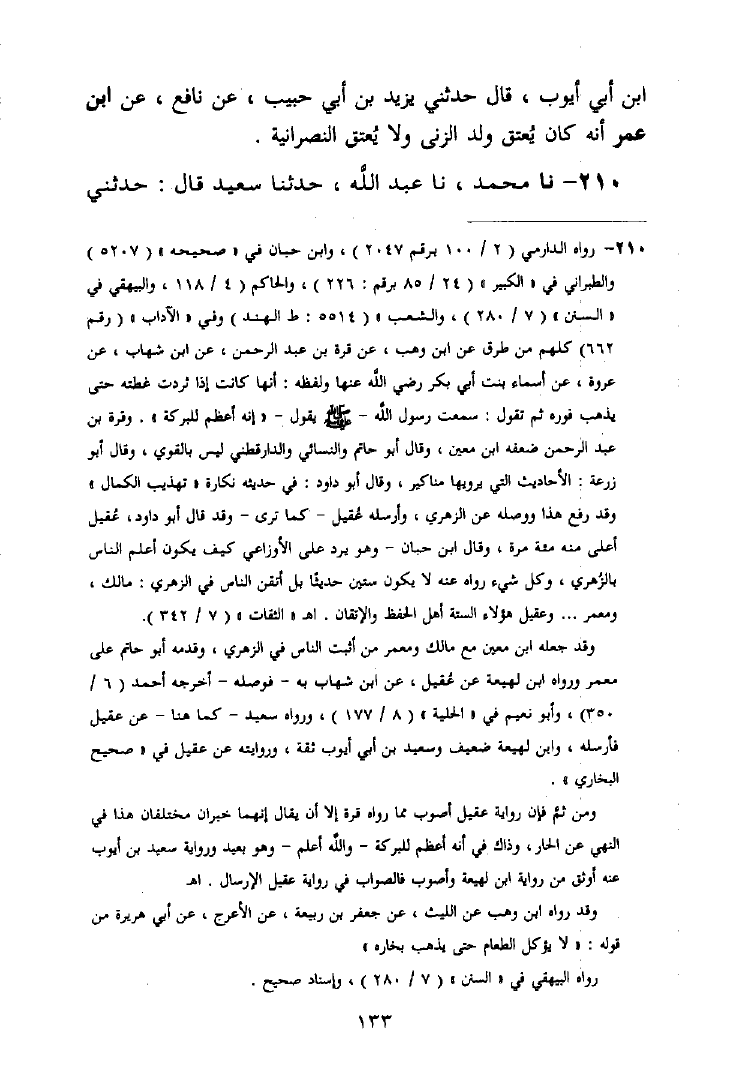 ابن أبي أيوب ، قال حدثني يزيد بن أبي حبيب ، عن نافع ، عن ابن
عمر أنه كان يُعتق ولد الزنى ولا يُعتق النصرانية .
٢١٠- نا محمد ، نا عبد اللَّه ، حدثنا سعيد قال : حدثني
٢١٠- رواه الدارمي ( ٢ / ١٠٠ برقم ٢٠٤٧ ) ، وابن حبان في « صحيحه » ( ٥٢٠٧ )
والطبراني في « الكبير » ( ٢٤ / ٨٥ برقم : ٢٢٦ ) ، والحاكم ( ٤ / ١١٨ ، والبيهقي في
« السنن » ( ٧ / ٢٨٠ ) ، والشعب » ( ٥٥١٤ : ط الهند ) وفي « الآداب » ( رقم
٦٦٢) كلهم من طرق عن ابن وهب ، عن قرة بن عبد الرحمن ، عن ابن شهاب ، عن
عروة ، عن أسماء بنت أبي بكر رضي اللَّه عنها ولفظه : أنها كانت إذا ثردت غطته حتى
يذهب فوره ثم تقول : سمعت رسول اللَّه - ﷺ يقول - « إنه أعظم للبركة » . وقرة بن
عبد الرحمن ضعفه ابن معين ، وقال أبو حاتم والنسائي والدارقطني ليس بالقوي ، وقال أبو
زرعة : الأحاديث التي يرويها مناكير ، وقال أبو داود : في حديثه نكارة « تهذيب الكمال »
وقد رفع هذا ووصله عن الزهري ، وأرسله عُقيل - كما ترى - وقد قال أبو داود، عُقيل
أعلى منه مئة مرة ، وقال ابن حبان - وهو يرد على الأوزاعي كيف يكون أعلم الناس
بالزُهري ، وكل شيء رواه عنه لا يكون ستين حديثًا بل أتقن الناس في الزهري : مالك ،
ومعمر ... وعقيل هؤلاء الستة أهل الحفظ والإتقان . اهـ « الثقات » ( ٧ / ٣٤٢ ).
وقد جعله ابن معين مع مالك ومعمر من أثبت الناس في الزهري ، وقدمه أبو حاتم على
معمر ورواه ابن لهيعة عن عُقيل ، عن ابن شهاب به - فوصله - أخرجه أحمد ( ٦ /
٣٥٠) ، وأبو نعيم في « الحلية » ( ٨ / ١٧٧ ) ، ورواه سعيد - كما هنا - عن عقيل
فأرسله ، وابن لهيعة ضعيف وسعيد بن أبي أيوب ثقة ، وروايته عن عقيل في « صحيح
البخاري » .
ومن ثمَّ فإن رواية عقيل أصوب مما رواه قرة إلا أن يقال إنهما خبران مختلفان هذا في
النهي عن الحار ، وذاك في أنه أعظم للبركة - واللَّه أعلم - وهو بعيد ورواية سعيد بن أيوب
عنه أوثق من رواية ابن لهيعة وأصوب فالصواب في رواية عقيل الإرسال . اهـ
وقد رواه ابن وهب عن الليث ، عن جعفر بن ربيعة ، عن الأعرج ، عن أبي هريرة من
قوله : « لا يؤكل الطعام حتى يذهب بخاره »
رواه البيهقي في « السنن » ( ٧ / ٢٨٠ ) ، وإسناد صحيح .
١٣٣